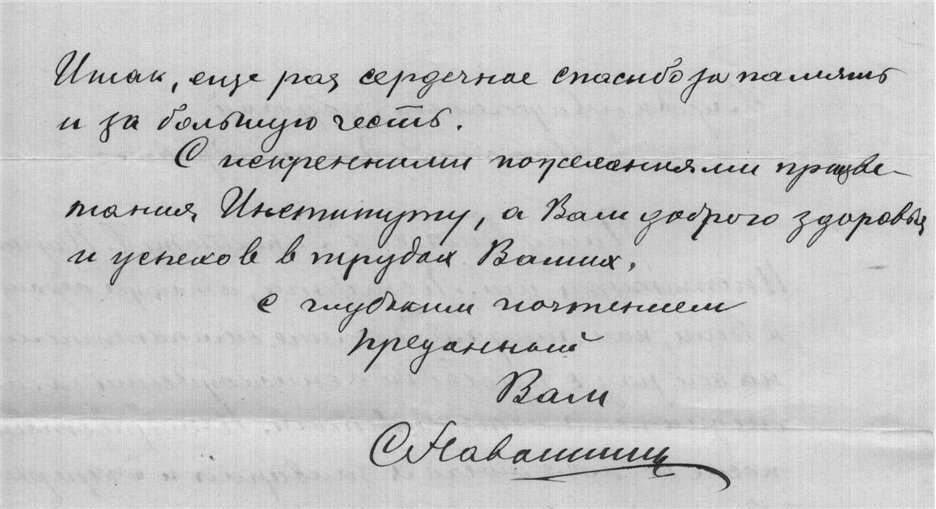 Итак, еще раз сердечное спасибо за память
и за большую честь.
С искренними пожеланиями процве-
тания Институту, а Вам доброго здоровья
и успехов в трудах Ваших,
с глубоким почтением
преданный
Вам
С Навашин